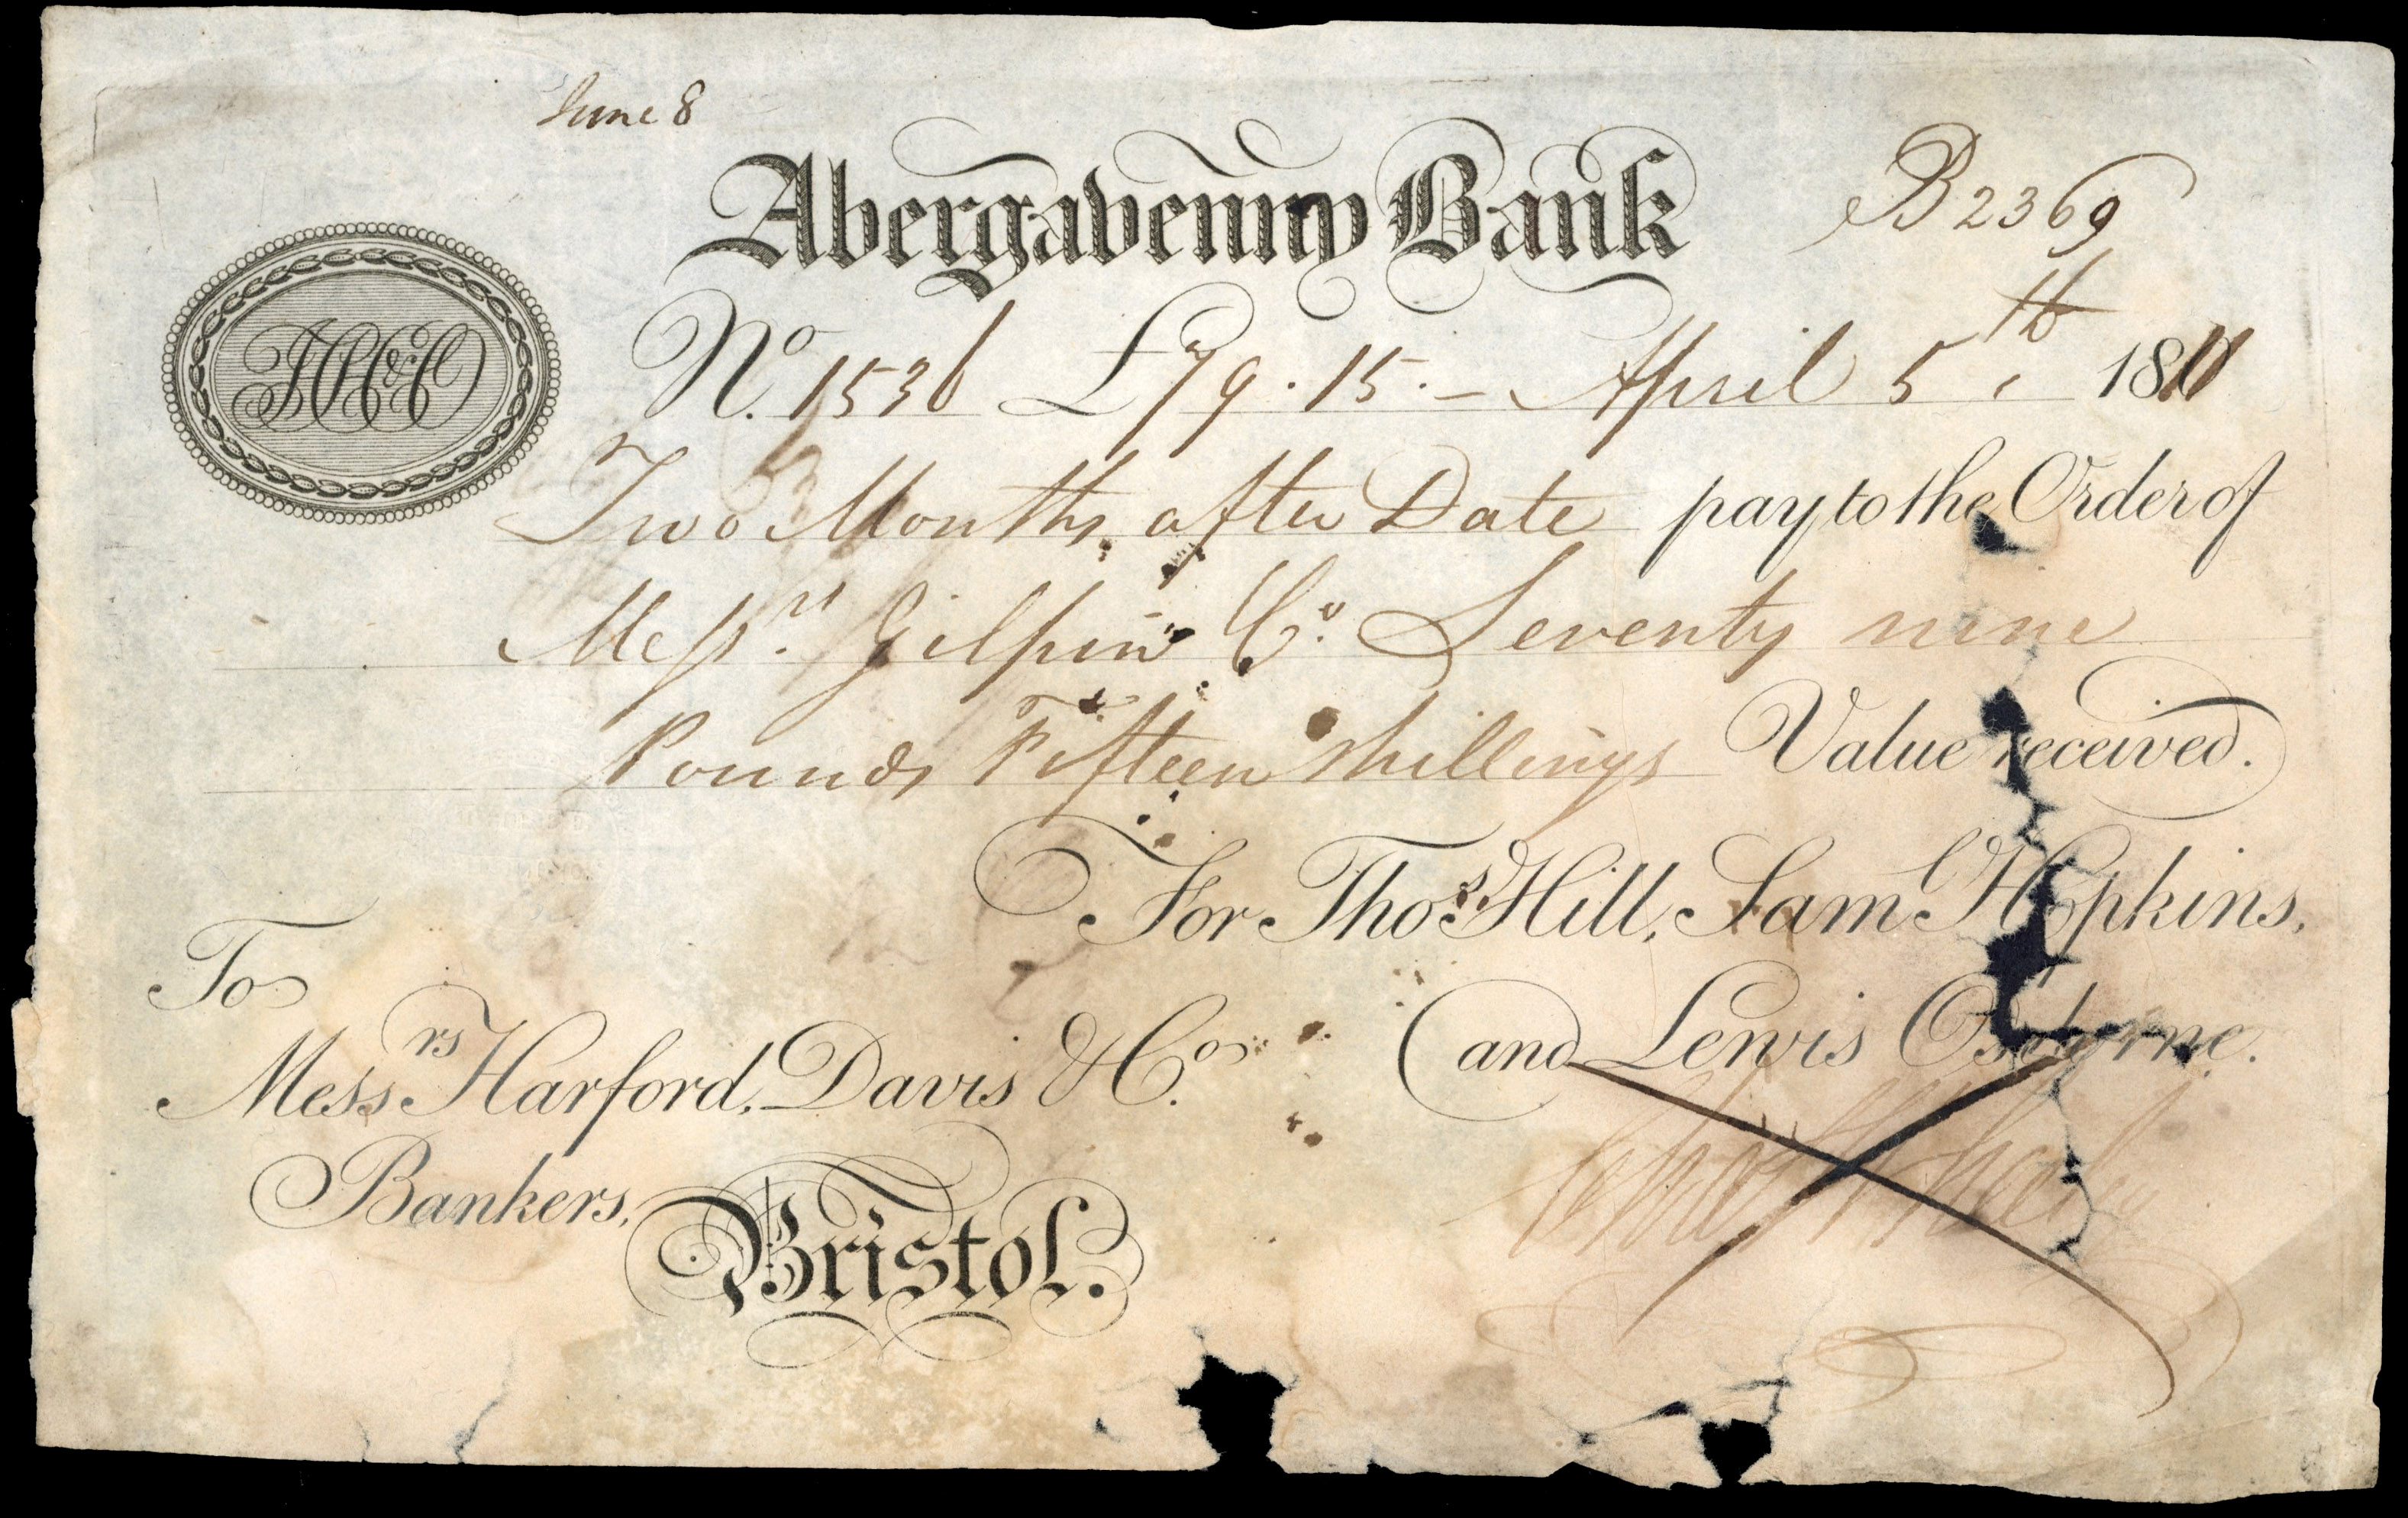 June 8
Abergavenny Bank
B 2369
No. 1536 £79.15.- April 5th 1811
Two Months after Date pay to the Order of
Messrs. Gilpin & Co. Seventy nine
Pounds Fifteen shillings Value received.
For Thos. Hill, Saml. Hopkins,
and Lewis Osborne.
To
Messrs Harford, Davis & Co.
Bankers,
Bristol.